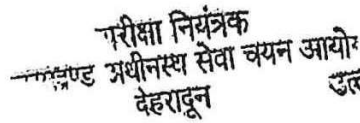 परीक्षा नियंत्रक
अधीनस्थ सेवा चयन आयो
देहरादून